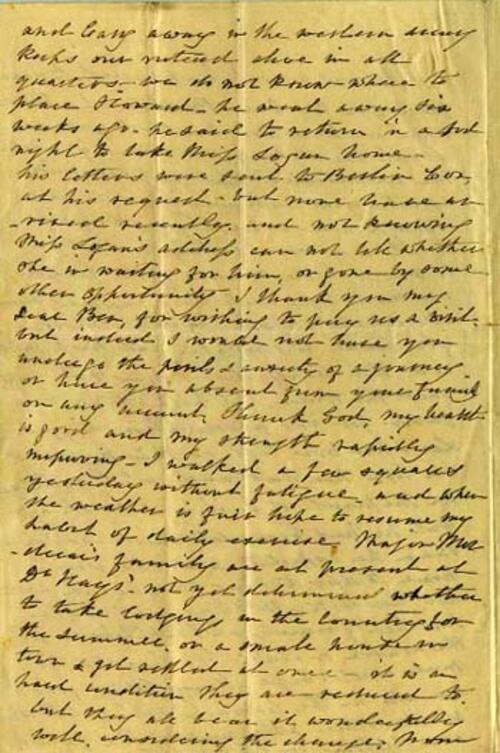 and Cary away in the western army
keeps our interest alive in all
quarters - we do not know where to
place Howard - he went away six
weeks ago - he said to return in a fort
night to take Miss Logan home -
his letters were sent to Berlin
at his request - but none have ar
-rived recently. and not knowing
Miss Logans address can not tell whether
she is waiting for him, or gone by some
other opportunity. I thank you my
dear Ben, for wishing to pay us a visit -
but indeed I would not have you
undergo the perils & anxiety of a journey -
or have you absent from your family
on any account. Thank God, my health
is good and my strength rapidly
improving - I walked a few squares
yesterday without fatigue, and when
the weather is fair hope to resume my
habit of daily exercise. Major Mor
-decai's family are at present at
Dr Hays' - not yet determined whether
to take lodgings in the country for
the summer, or a small house in
town & get settled at once - it is a
hard condition they are reduced to.
but they all bear it wonderfully
well, considering the change;